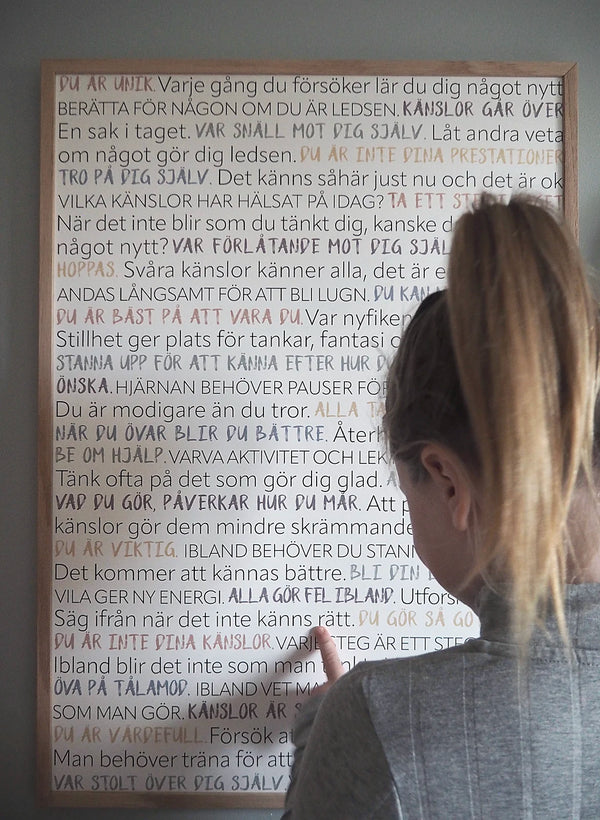 DU ÄR UNIK. Varje gång du försöker lär du dig något nytt
BERÄTTA FÖR NÅGON OM DU ÄR LEDSEN. KÄNSLOR GÅR ÖVER
En sak i taget. VAR SNÄLL MOT DIG SJÄLV. Låt andra veta
om något gör dig ledsen. DU ÄR INTE DINA PRESTATIONER
TRO PÅ DIG SJÄLV. Det känns såhär just nu och det är ok
VILKA KÄNSLOR HAR HÄLSAT PÅ IDAG? TA ETT
När det inte blir som du tänkt dig, kanske
något nytt? VAR FÖRLÅTANDE MOT DIG
HOPPAS. Svåra känslor känner alla, det är
ANDAS LÅNGSAMT FÖR ATT BLI LUGN. DU KAN
DU ÄR BÄST PÅ ATT VARA DU. Var nyfiken
Stillhet ger plats för tankar, fantasi
STANNA UPP FÖR ATT KÄNNA EFTER HUR DU
ÖNSKA. HJÄRNAN BEHÖVER PAUSER
Du är modigare än du tror. ALLA
NÄR DU ÖVAR BLIR DU BÄTTRE.
BE OM HJÄLP. VARVA AKTIVITET OCH
Tänk ofta på det som gör dig glad.
VAD DU GÖR, PÅVERKAR HUR DU MÅR. Att
känslor gör dem mindre skrämmande
DU ÄR VIKTIG. IBLAND BEHÖVER DU
Det kommer att kännas bättre. BLI DIN
VILA GER NY ENERGI. ALLA GÖR FEL IBLAND.
Säg ifrån när det inte känns rätt. DU GÖR SÅ
DU ÄR INTE DINA KÄNSLOR. VARJE STEG ÄR ETT
Ibland blir det inte som man
ÖVA PÅ TÅLAMOD. IBLAND VET
SOM MAN GÖR. KÄNSLOR ÄR
DU ÄR VÄRDEFULL. Försök
Man behöver träna för att
VAR STOLT ÖVER DIG SJÄLV.